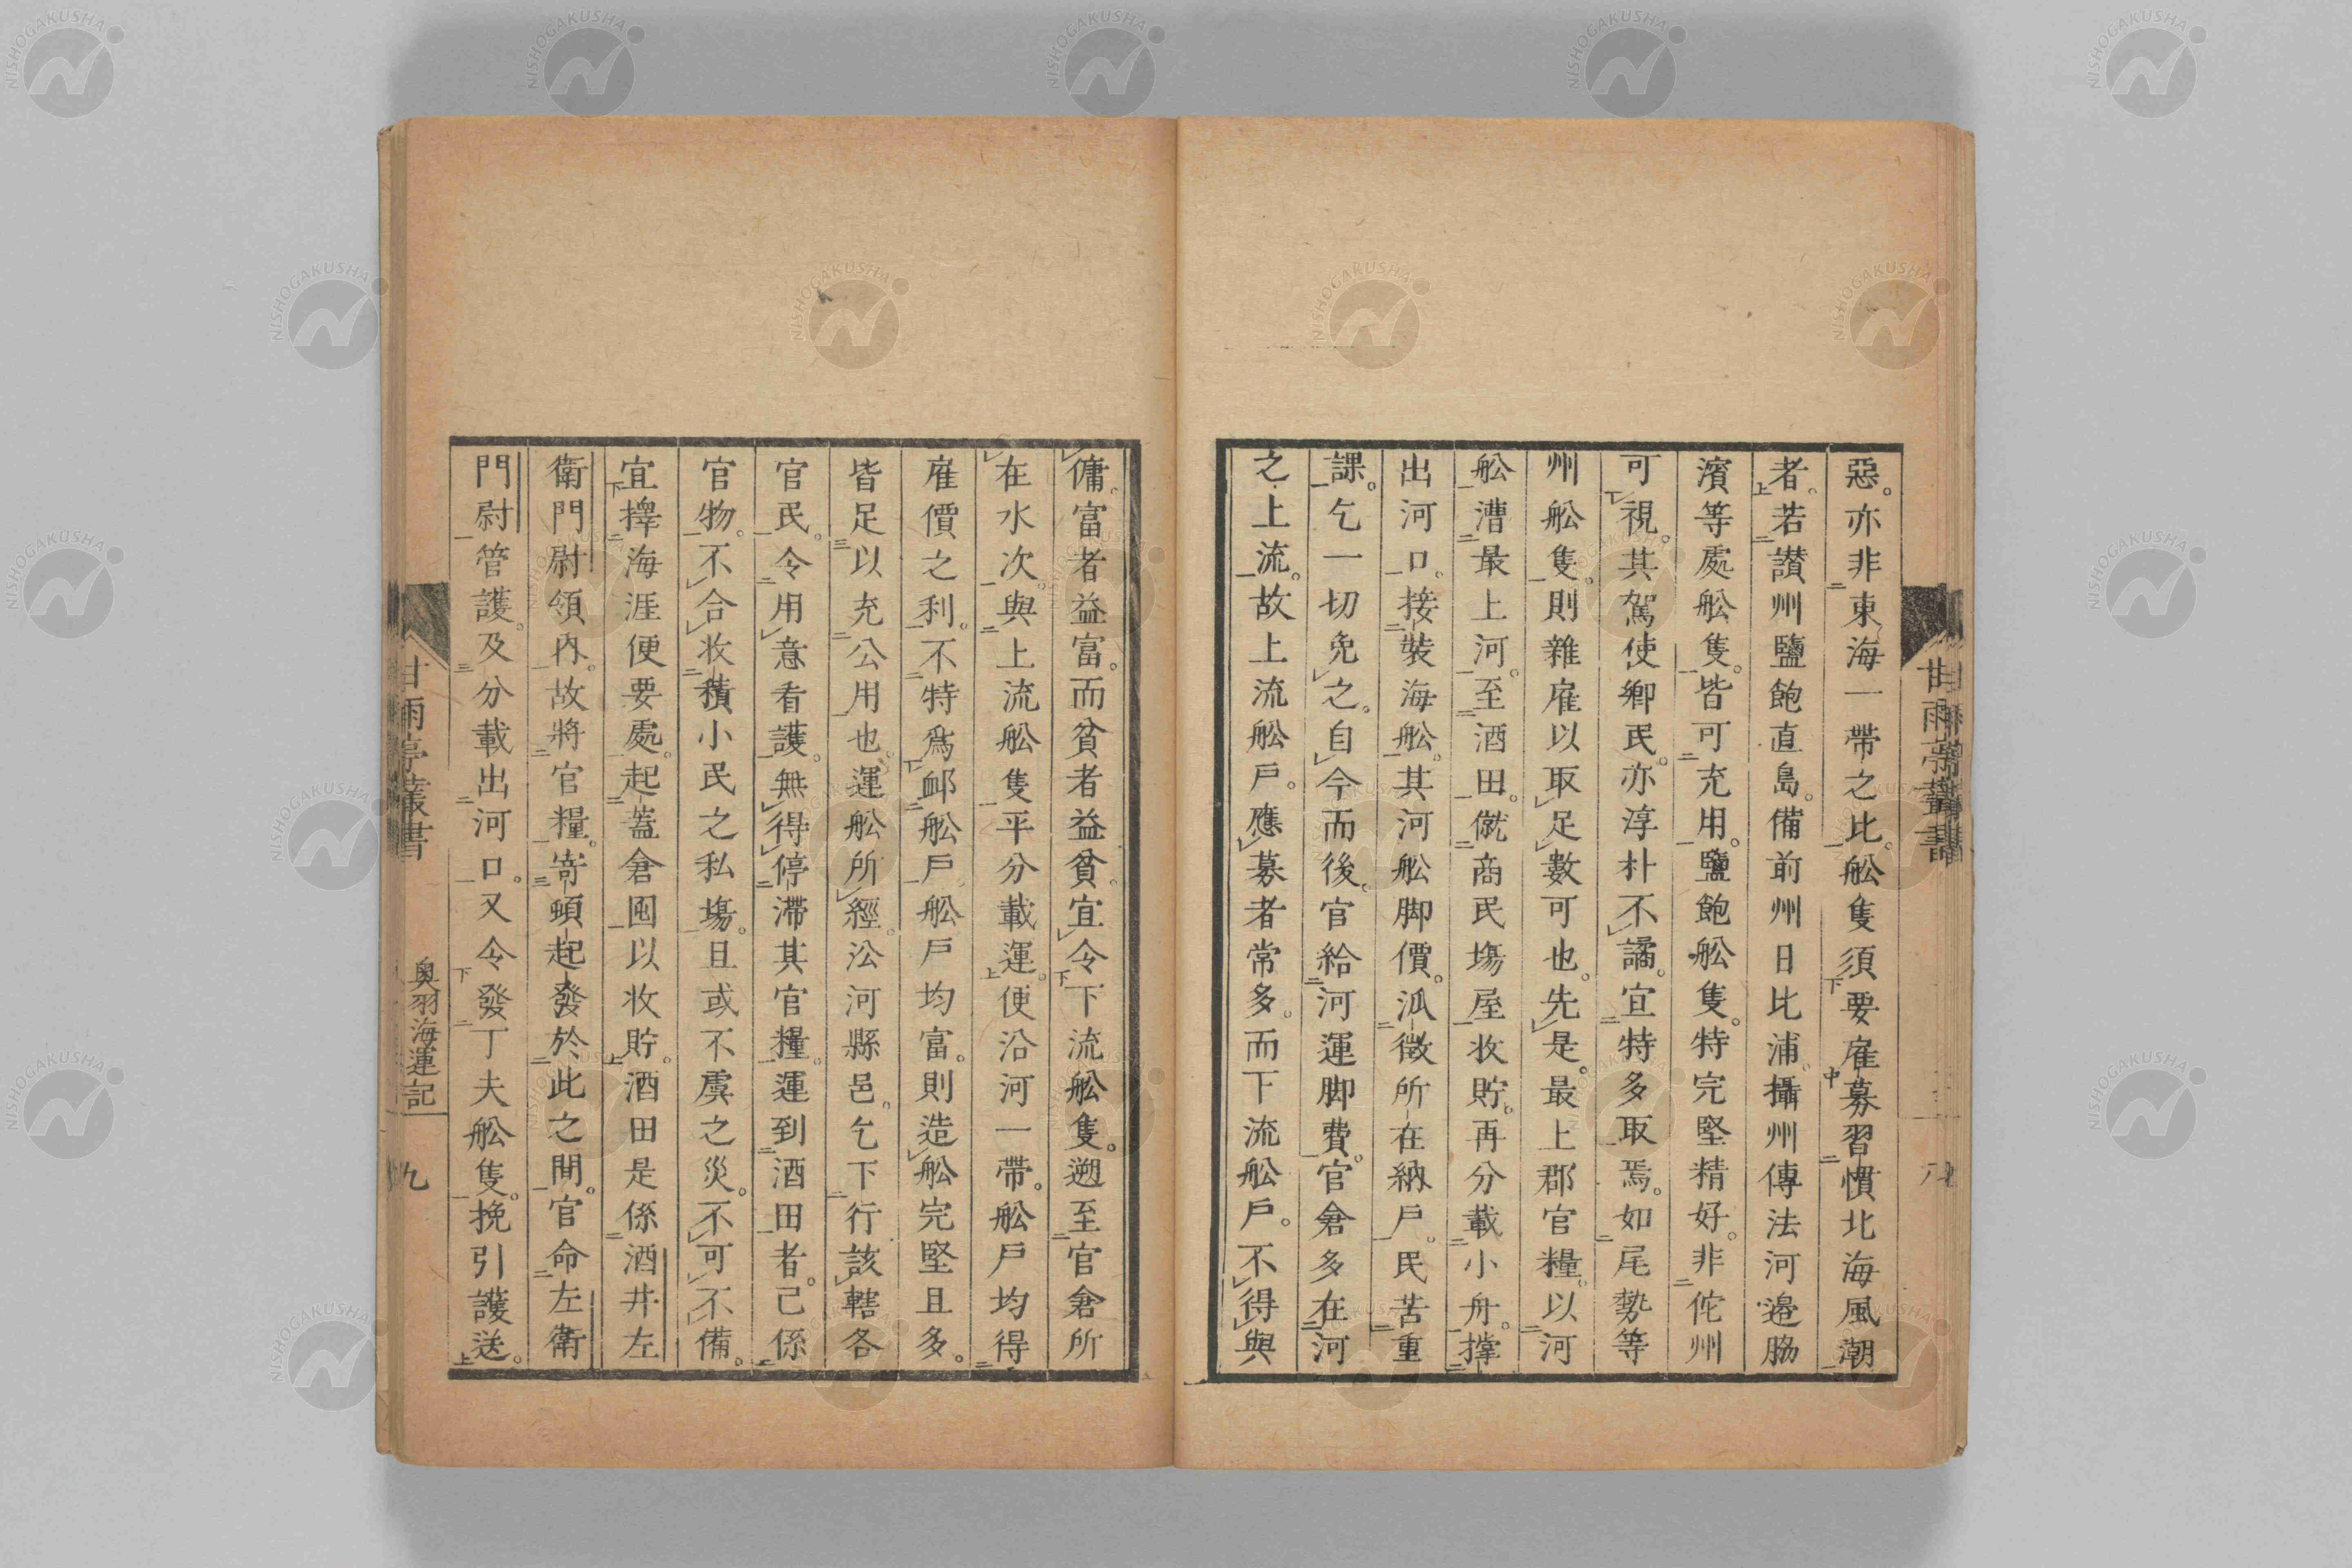 惡。亦非東海一帶之比。舩隻須要雇募習慣北海風潮
者。若讃州鹽飽直島。備前州日比浦。攝州傳法河邉脇
濱等處舩隻。皆可充用。鹽飽舩隻。特完堅精好。非佗州
可視。其駕使鄉民。亦淳朴不譎。宜特多取焉。如尾㔟等
州舩隻。則雜雇以取足數可也。先是。最上郡官糧。以河
舩漕最上河。至酒田。僦商民塲屋收貯。再分載小舟。撑
出河口。接裝海舩。其河舩脚價。泒徵所在納戶。民苦重
課。乞一切免之。自今而後。官給河運脚費。官倉多在河
之上流。故上流舩戶。應募者常多。而下流舩戶。不得與
傭。富者益富。而貧者益貧。宜令下流舩隻。遡至官倉所
在水次。與上流舩隻平分載運。便沿河一帶。舩戶均得
雇價之利。不特爲䘏舩戶。舩戶均富。則造舩完堅且多。
皆足以充公用也。運舩所經。㳂河縣邑。乞下行該轄各
官民。令用意看護。無得停滯其官糧。運到酒田者。已係
官物。不合收積小民之私塲。且或不虞之災。不可不備。
宜擇海涯便要處。起蓋倉囤以收貯。酒田是係酒井左
衛門尉領内。故將官糧。寄頓起發於此之間。官命左衛
門尉管護。及分載出河口。又令發丁夫舩隻。挽引護送。
甘雨亭叢書
奧羽海運記
九
甘雨亭叢書